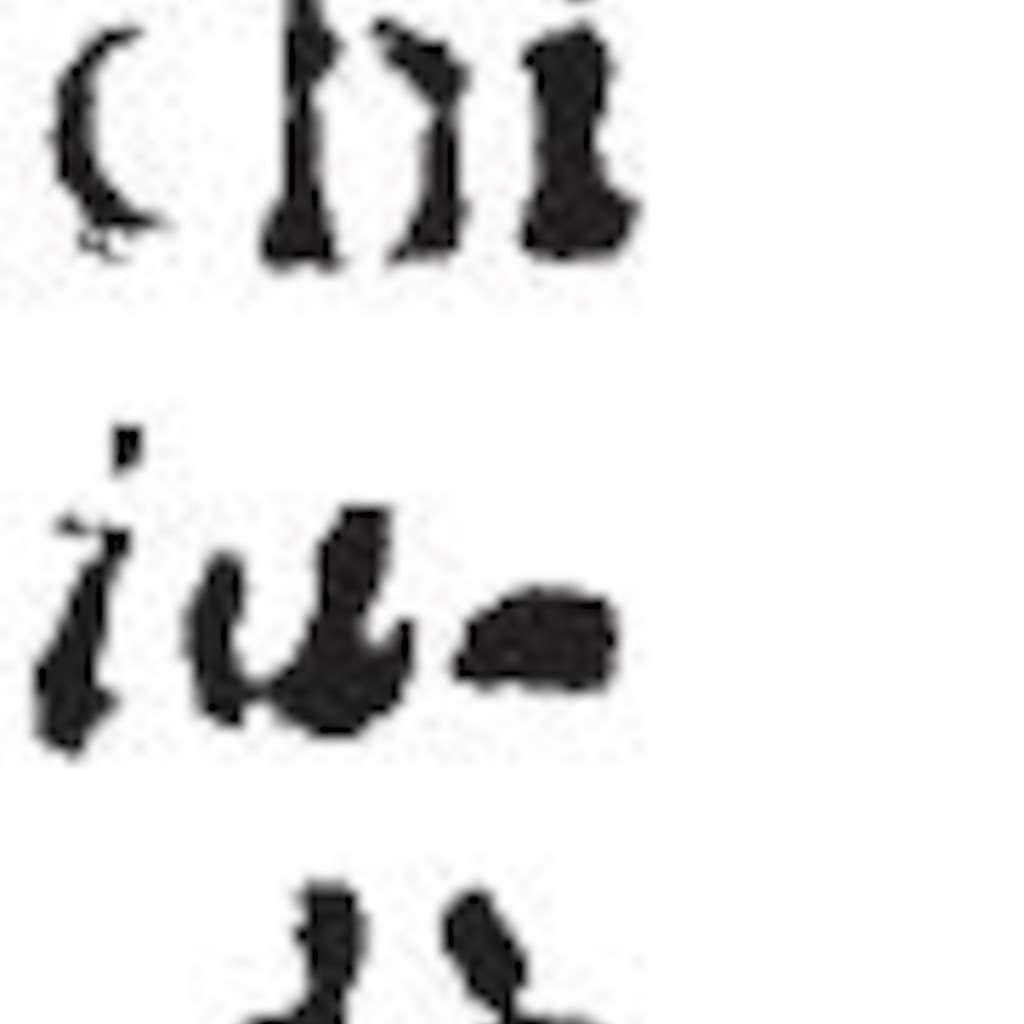 chi
iu-